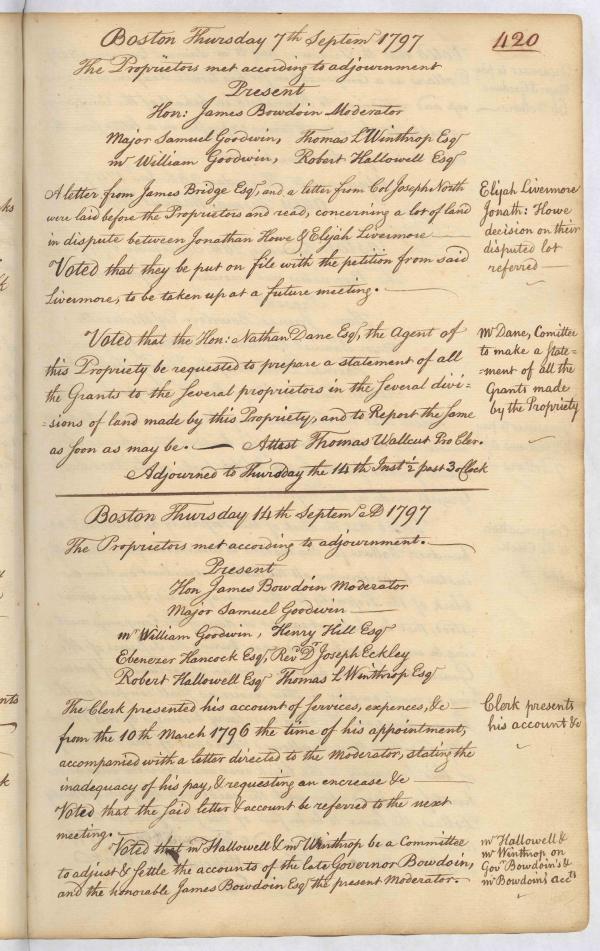 Boston Thursday 7th Septemr 1797
420
The Proprietors met according to adjournment
Present
Hon: James Bowdoin Moderator
Major Samuel Goodwin, Thomas L Winthrop Esqr
mr William Goodwin, Robert Hallowell Esqr
A letter from James Bridge Esqr, and a letter from Col Joseph North
were laid before the Proprietors and read, concerning a lot of land
in dispute between Jonathan Howe & Elijah Livermore
Voted that they be put on file with the petition from said
Livermore, to be taken up at a future meeting.
Elijah Livermore
Jonath: Howe
decision on their
disputed lot
referred
Voted that the Hon: Nathan Dane Esqr, the Agent of
this Propriety be requested to prepare a statement of all
the Grants to the several proprietors in the several divi-
=sions of land made by this Propriety, and to Report the same
as soon as may be. — Attest Thomas Wallcut Pro Cler.
Adjourned to Thursday the 14th Inst ½ past 3 oClock
Mr Dane, Comittee
to make a state=
=ment of all the
Grants made
by the Propriety
Boston Thursday 14th Septemr AD 1797
The Proprietors met according to adjournment.
Present
Hon James Bowdoin Moderator
Major Samuel Goodwin
mr William Goodwin, Henry Hill Esqr
Ebenezer Hancock Esqr, Revd Dr Joseph Eckley
Robert Hallowell Esqr Thomas L Winthrop Esqr
The Clerk presented his account of services, expences, &c
from the 10th March 1796 the time of his appointment,
accompanied with a letter directed to the Moderator, stating the
inadequacy of his pay, & requesting an encrease &c
Voted that the said letter & account be referred to the next
meeting.
Clerk presents
his account &c
Voted that mr Hallowell & mr Winthrop be a Committee
to adjust & settle the accounts of the late Governor Bowdoin,
and the honorable James Bowdoin Esqr the present Moderator.
mr Hallowell &
mr Winthrop on
Govr Bowdoin's &
mr Bowdoins' accts